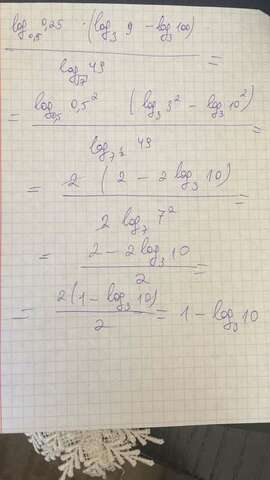 log₀,₅ 0,25 · (log₃ 9 - log₃ 100)
log√7 49 =
= log₀,₅ 0,5² (log₃ 3² - log₃ 10²)
log 49 =
= 2 (2 - 2 log₃ 10)
2 log₇ 7² =
= 2 - 2 log₃ 10
2 =
= 2(1 - log₃ 10)
2 = 1 - log₃ 10